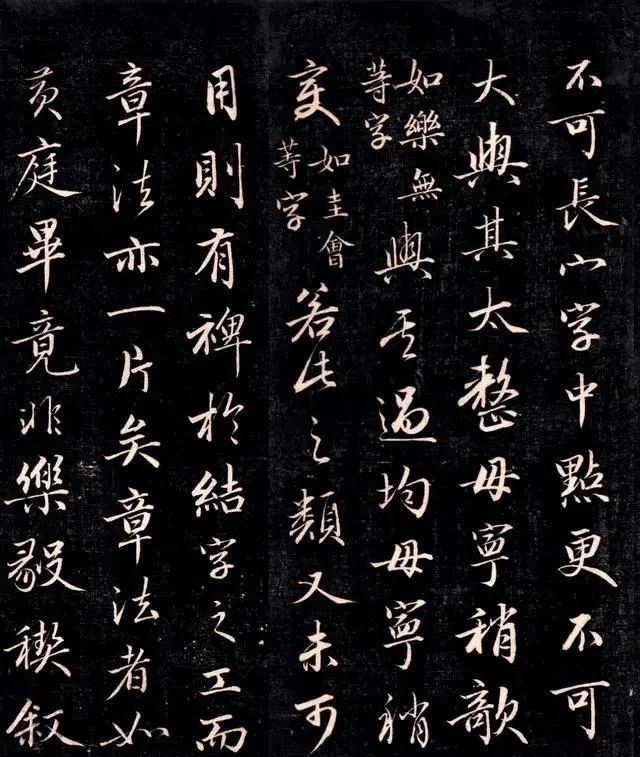 不可長宀字中點更不可
大與其太整毋寧稍欹
如樂無等字與其過均毋寧稍
変如圭會等字若此之類又未可
用則有裨於結字之工而
章法亦一片矣章法者如
黃庭畢竟非樂毅禊叙